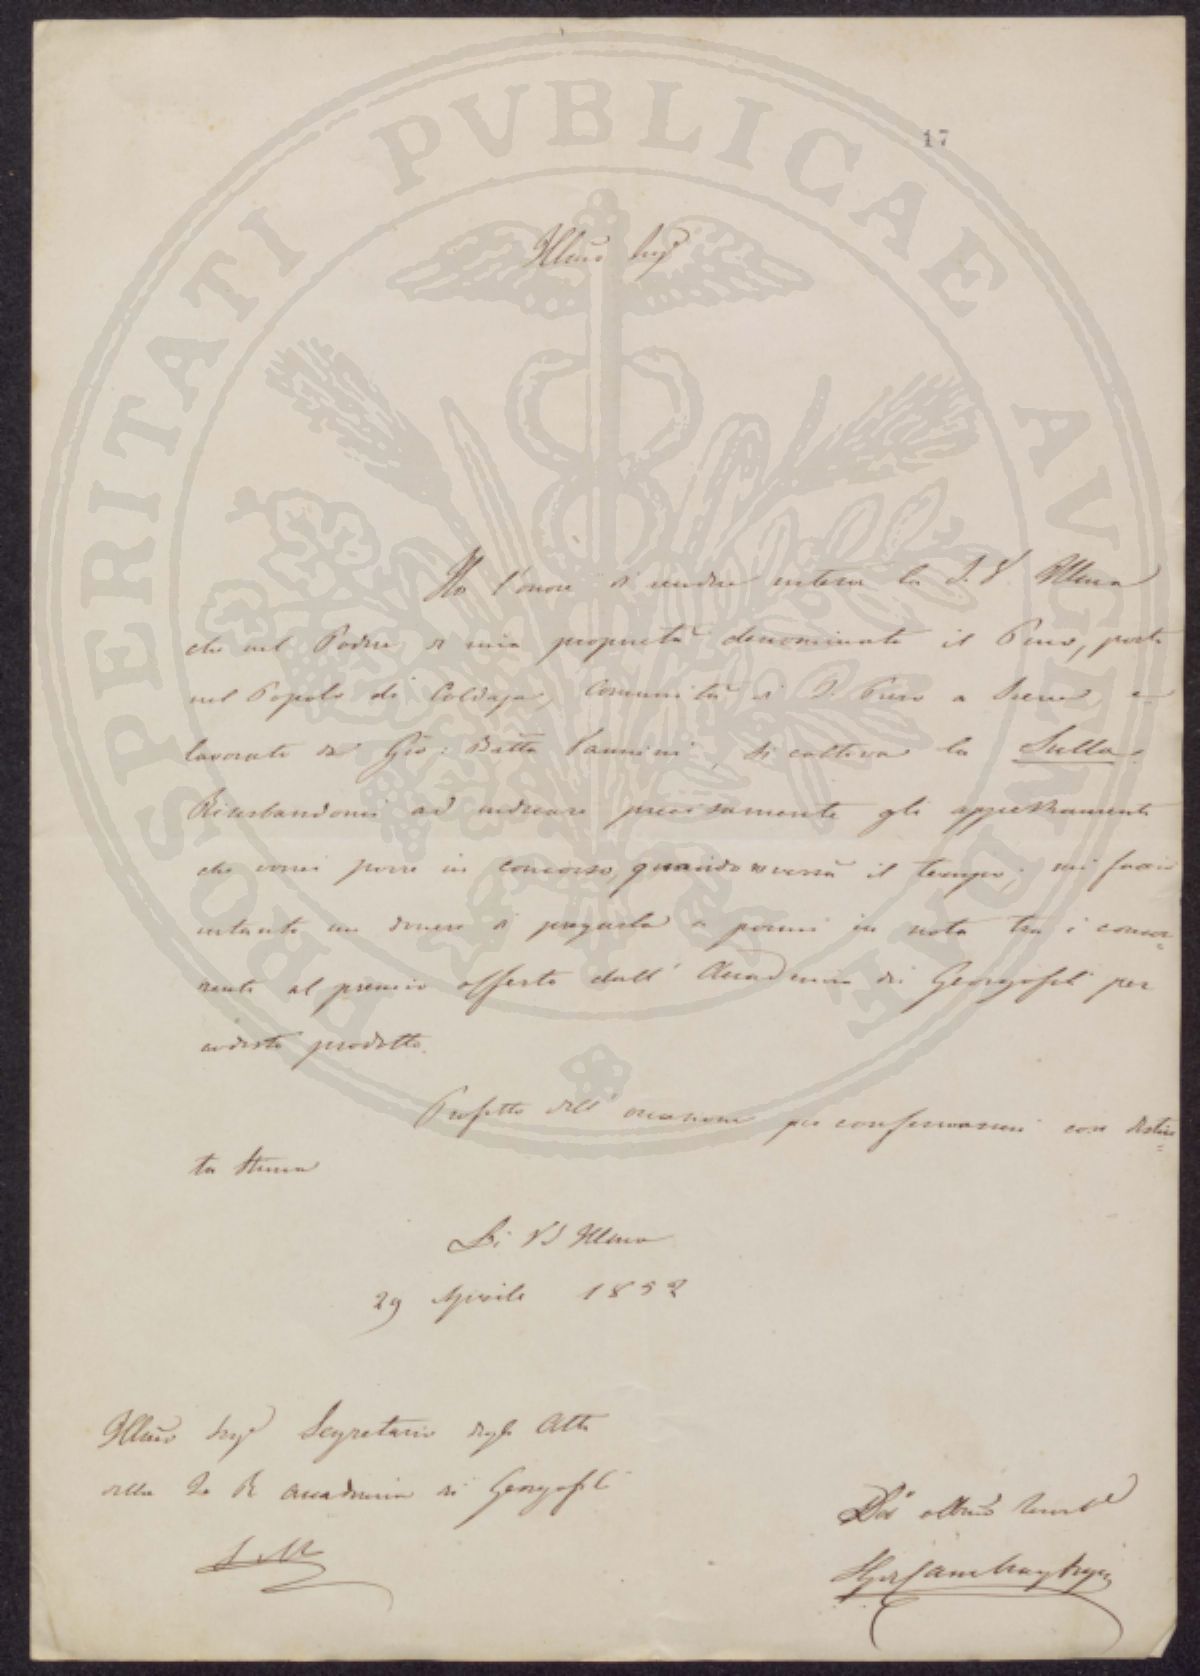 17
PROSPERITATI PVBLICAE AVGENDAE
Illmo Sigre
Ho l'onore di rendere intesa la S. V. Illma
che nel Podere di mia proprietà denominato il Pino, posto
nel Popolo di Coldaja, Comunità di S. Piero a Sieve, e
lavorato da Gio: Batta Vannini, si coltiva la Sulla.
Riserbandomi ad indicare precisamente gli appezzamenti
che vorrei porre in concorso, quando ne verrà il tempo; mi faccio
intanto un dovere di pregarla a pormi in nota tra i concor=
renti al premio offerto dall' Accademia dei Georgofili per
codesto prodotto.
Profitto dell' occasione per confermarmi con distin=
ta stima
Di VS Illma
29 Aprile 1852
Illmo Sigre Segretario degli Atti
della I. e R. Accademia dei Georgofili
Dmo Obbmo Servre